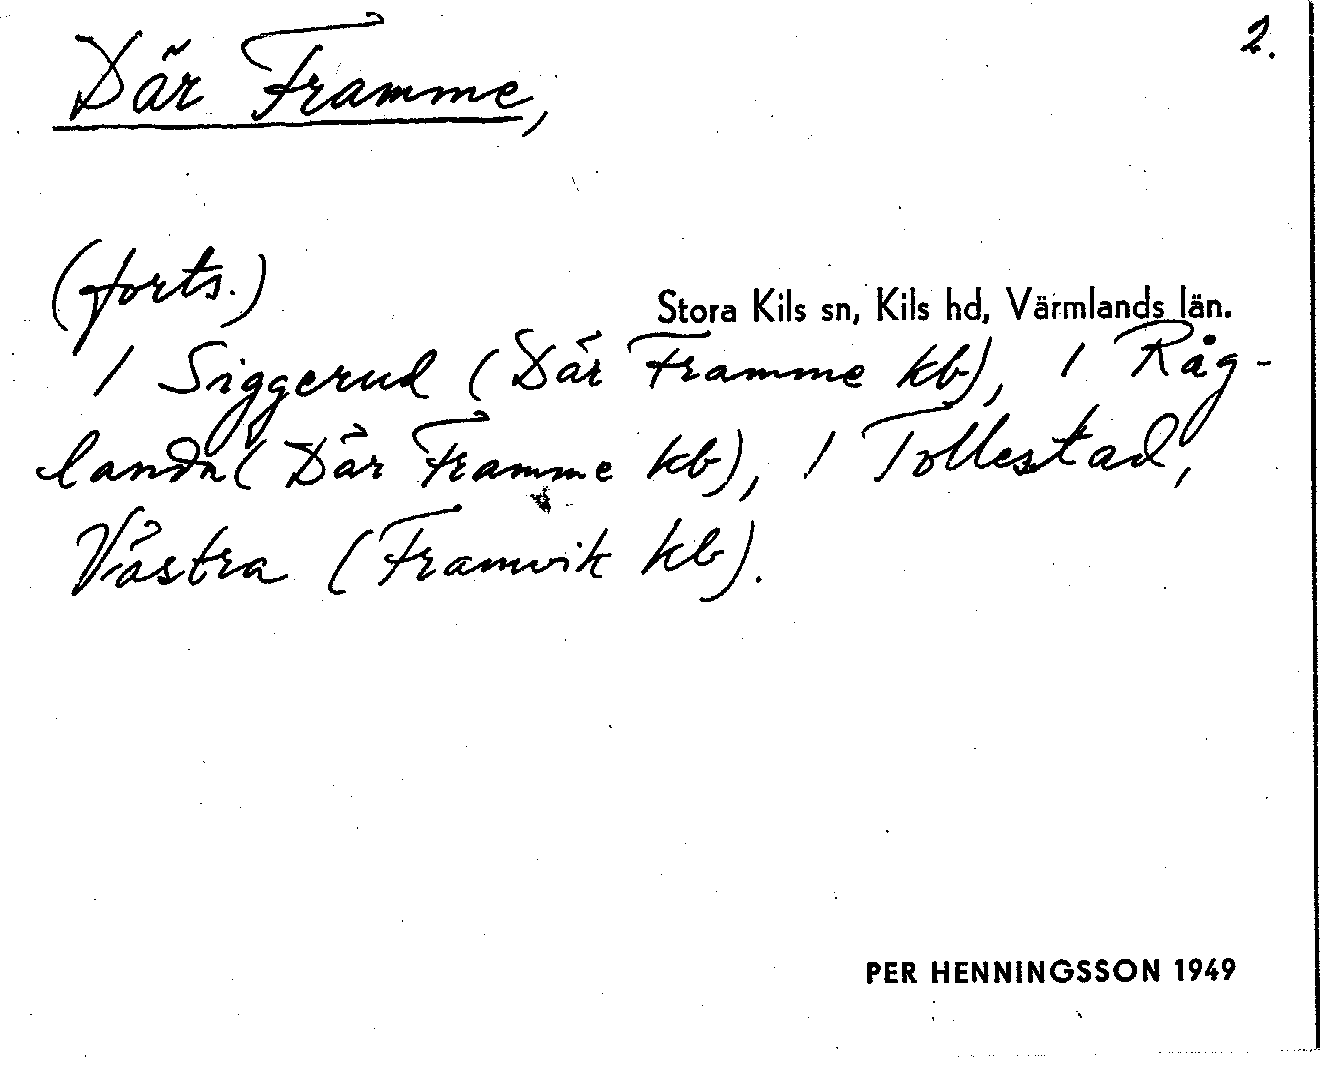 2.
Där Framme,
(forts.)
Stora Kils sn, Kils hd, Värmlands län.
1 Siggerud (Där Framme kb), 1 Råg-
landa (Där Framme kb), 1 Tollestad,
Västra (Framvik kb).
PER HENNINGSSON 1949